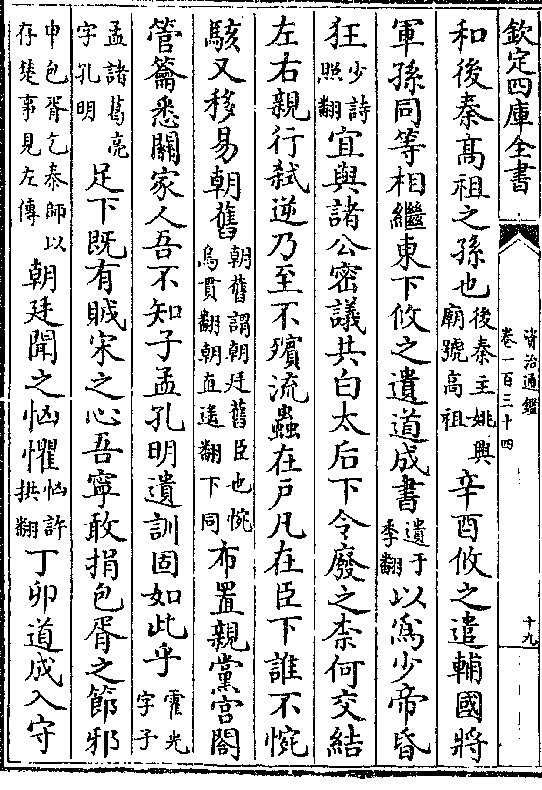 欽定四庫全書
資治通鑑
卷一百三十四
十九
和後秦髙祖之孫也後秦主姚興廟號高祖辛酉攸之遣輔國將
軍孫同等相繼東下攸之遺道成書遺于季翻以為少帝昏
狂少詩照翻宜與諸公密議共白太后下令廢之柰何交結
左右親行弑逆乃至不殯流蟲在戸凡在臣下誰不惋
駭又移易朝舊朝舊謂朝廷舊臣也惋烏貫翻朝直遥翻下同布置親黨宫閤
管籥悉關家人吾不知子孟孔明遺訓固如此乎霍光字子
孟諸葛亮字孔明足下既有賊宋之心吾寧敢捐包胥之節邪
申包胥乞秦師以存楚事見左傳朝廷聞之恟懼恟許拱翻丁卯道成入守